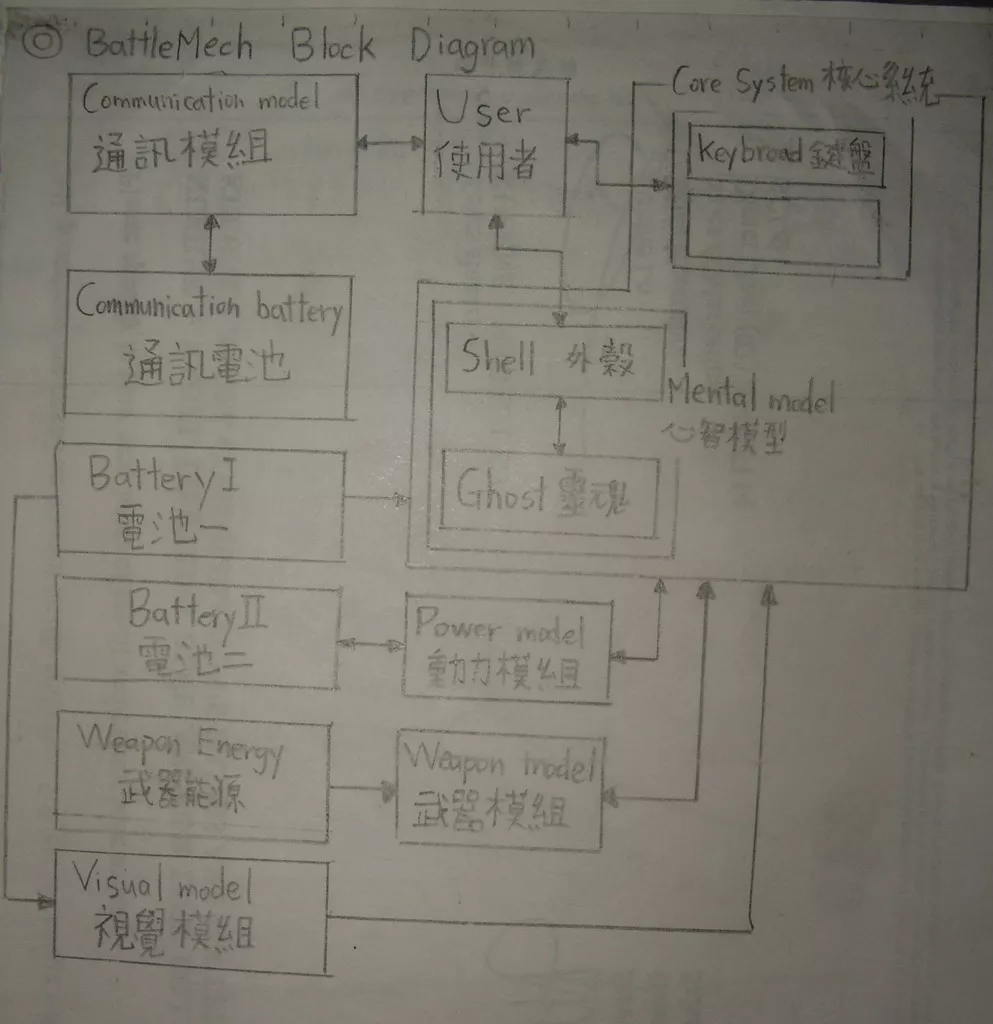 ◎ BattleMech Block Diagram
Communication model
通訊模組
User
使用者
Core System 核心系統
Keybroad 鍵盤
Communication battery
通訊電池
Shell 外殼
Mental model
心智模型
Ghost 靈魂
Battery I
電池一
Battery II
電池二
Power model
動力模組
Weapon Energy
武器能源
Weapon model
武器模組
Visual model
視覺模組